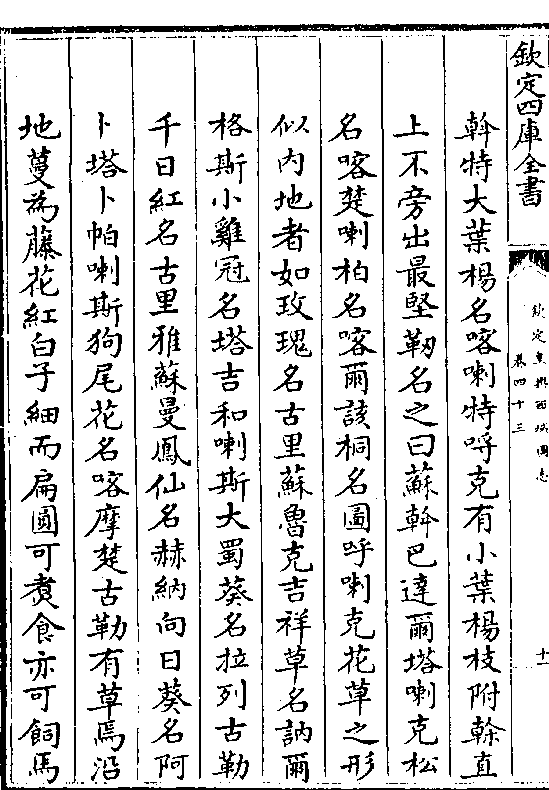 欽定四庫全書
欽定皇輿西域圖志
卷四十三
十一
斡特大葉楊名喀喇特呼克有小葉楊枝附榦直
上不旁出最堅韌名之曰蘇斡巴達爾塔喇克松
名喀楚喇柏名喀爾該桐名圖呼喇克花草之形
似内地者如玫瑰名古里蘇魯克吉祥草名訥爾
格斯小雞冠名塔吉和喇斯大蜀葵名拉列古勒
千日紅名古里雅蘇曼鳳仙名赫納向日葵名阿
卜塔卜帕喇斯狗尾花名喀摩楚古勒有草焉沿
地蔓為藤花紅白子細而扁圓可煑食亦可飼馬